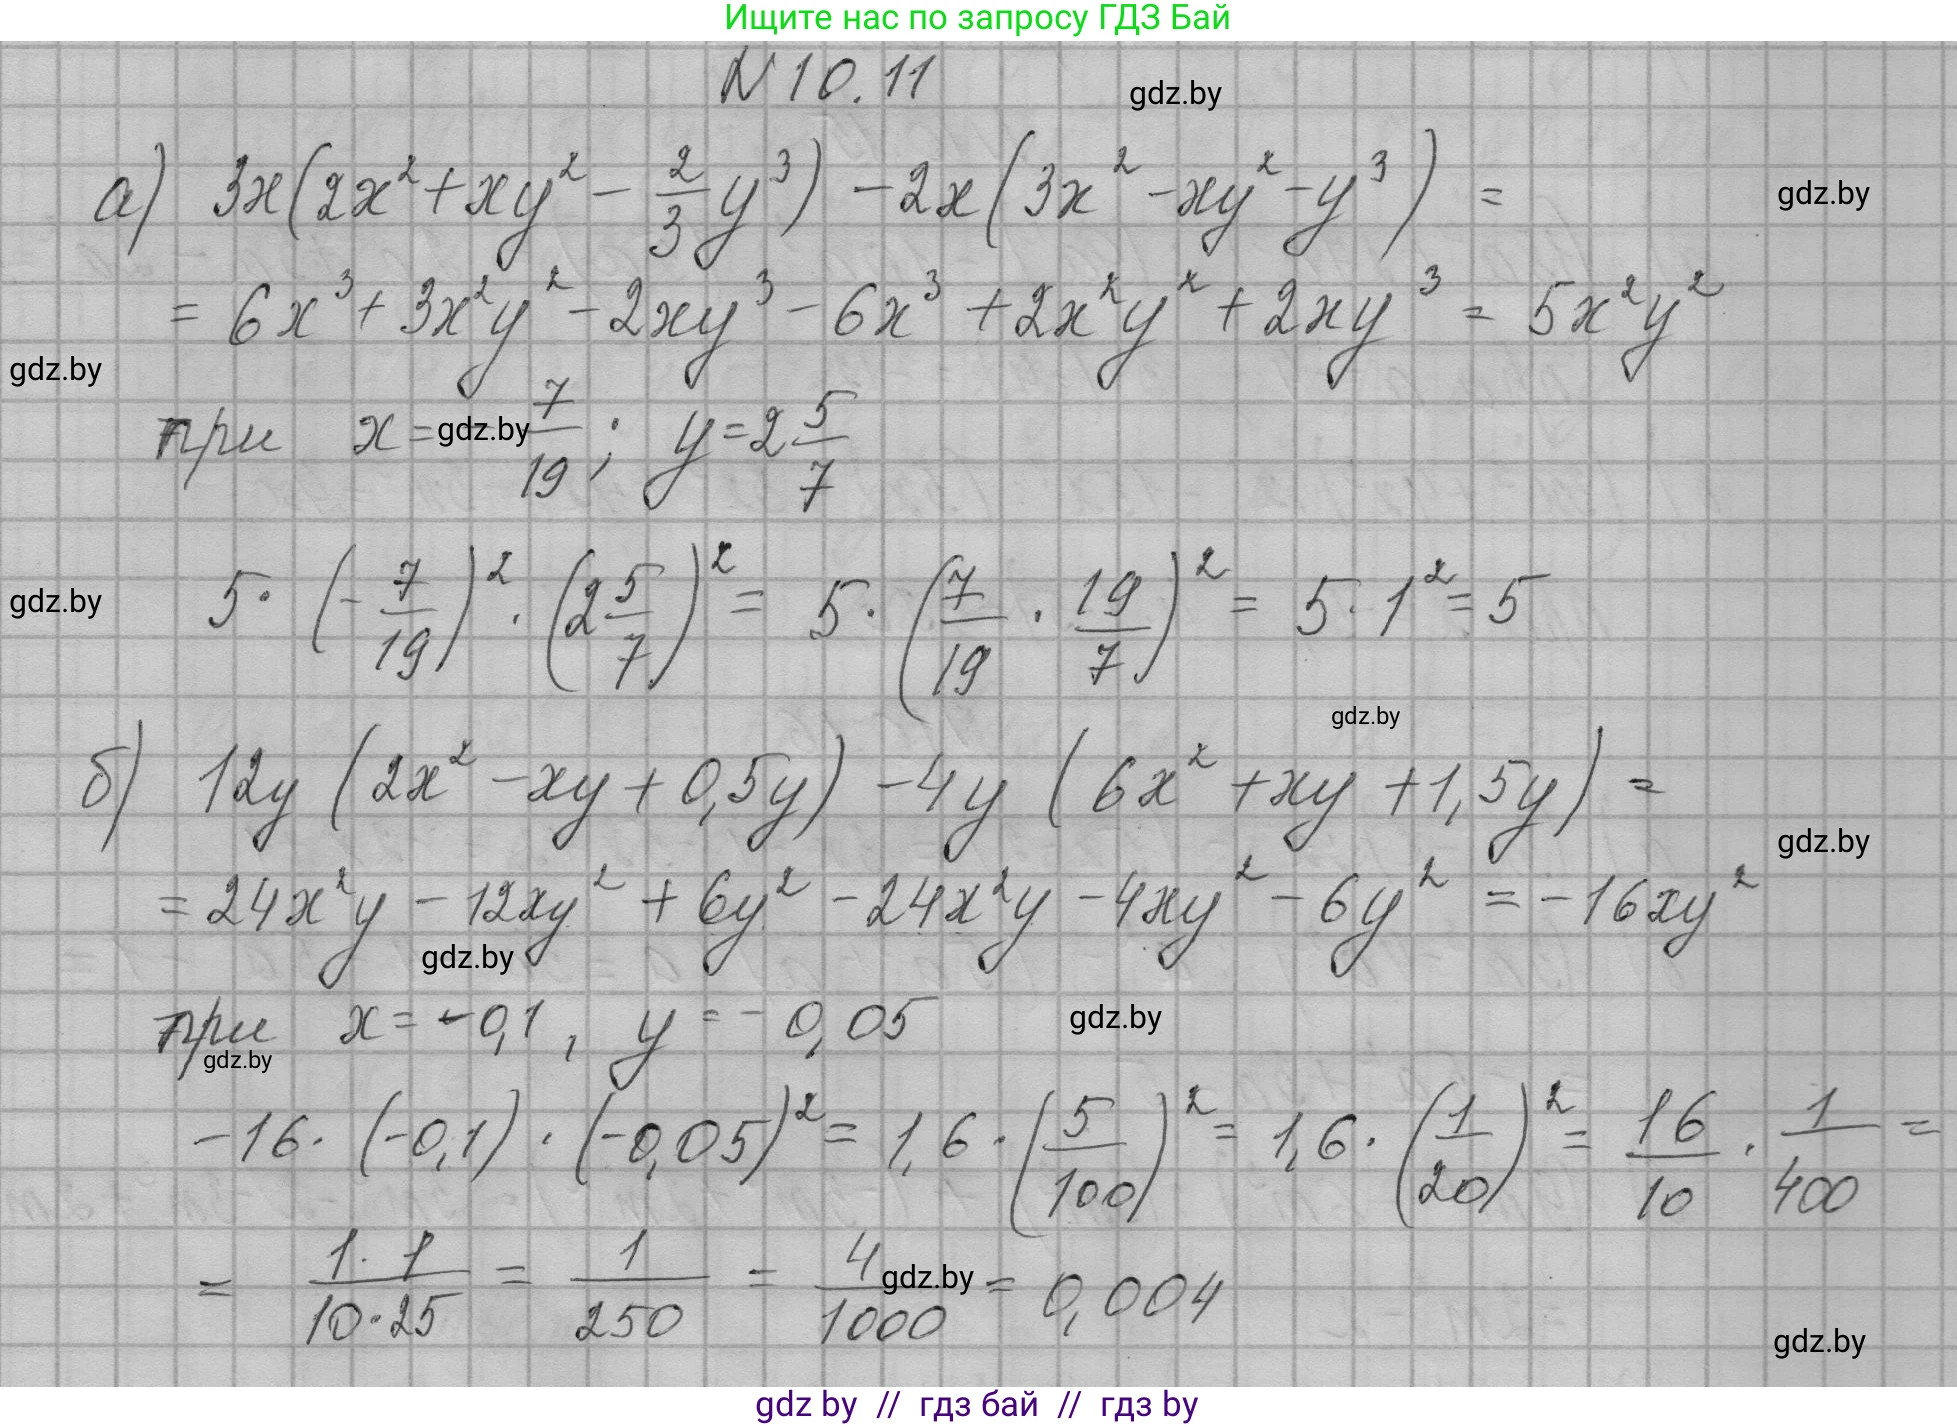 Ищите нас по запросу ГДЗ Бай
N 10.11
gdz.by
а) 3x(2x² + xy² - 2/3 y³) - 2x(3x² - xy² - y³) =
gdz.by
= 6x³ + 3x²y² - 2xy³ - 6x³ + 2x²y² + 2xy³ = 5x²y²
gdz.by
при x = - 7/19 ; y = 2 5/7
gdz.by
5 · (- 7/19)² · (2 5/7)² = 5 · (7/19 · 19/7)² = 5 · 1² = 5
gdz.by
gdz.by
б) 12y (2x² - xy + 0,5y) - 4y (6x² + xy + 1,5y) =
gdz.by
= 24x²y - 12xy² + 6y² - 24x²y - 4xy² - 6y² = -16xy²
gdz.by
при x = -0,1 , y = -0,05
gdz.by
gdz.by
-16 · (-0,1) · (-0,05)² = 1,6 · (5/100)² = 1,6 · (1/20)² = 16/10 · 1/400 =
= 1 · 1/10 · 25 = 1/250 = 4/1000 = 0,004
gdz.by
gdz.by
gdz by // гдз бай // гдз by